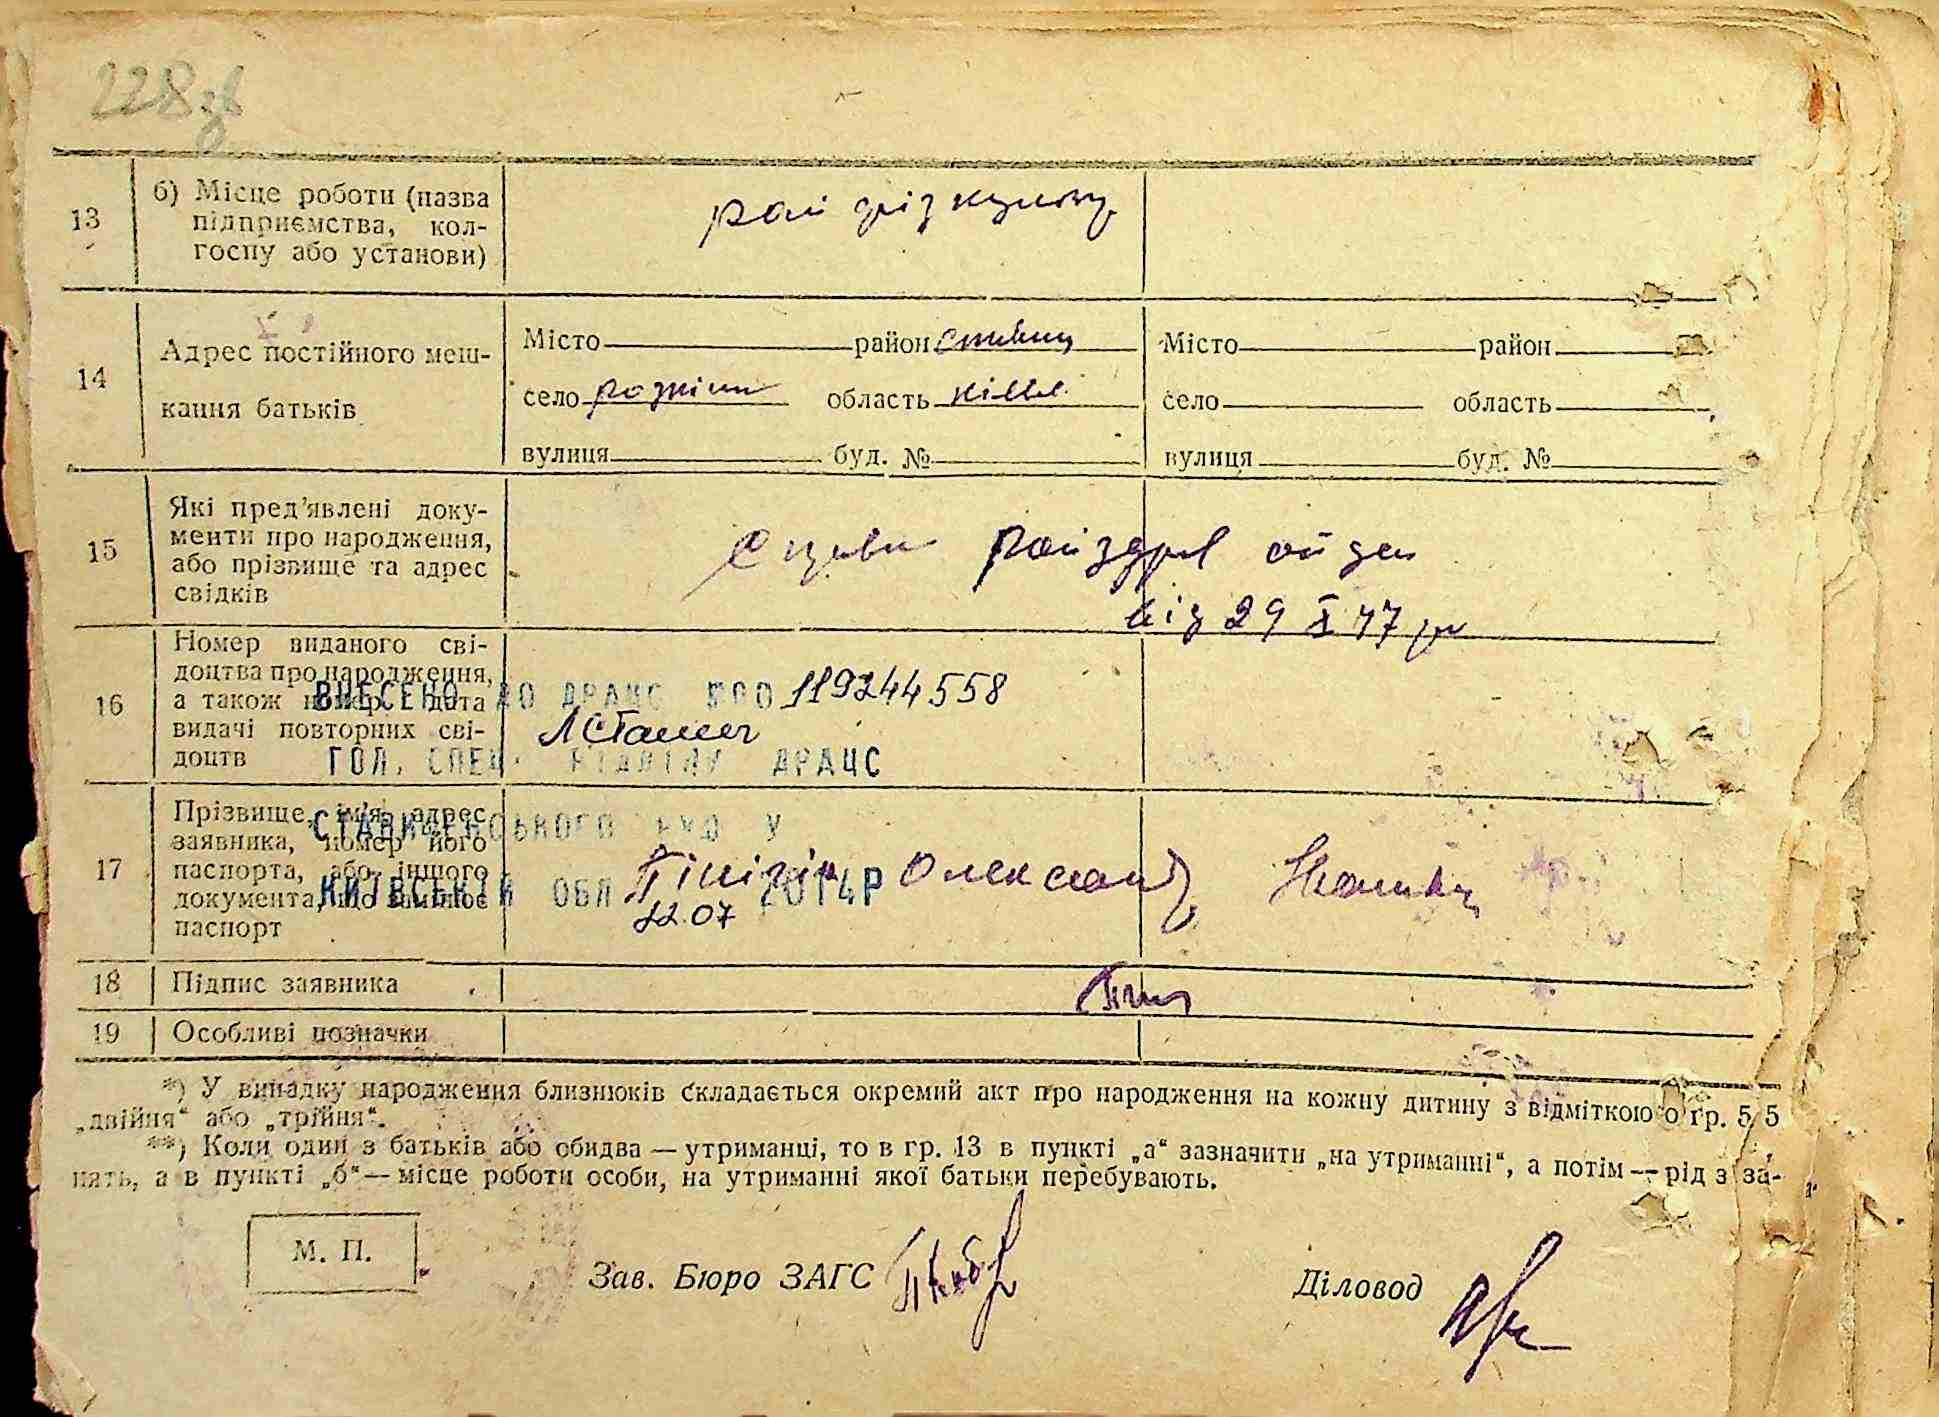 228 зв
13
б) Місце роботи (назва
підприємства, кол-
госпу або установи)
рай фізкульт
14
Адрес постійного меш-
кання батьків
Місто район
село область
вулиця буд. №
Місто район
село область
вулиця буд. №
15
Які пред'явлені доку-
менти про народження,
або прізвище та адрес
свідків
від 29 X 47 р
16
Номер виданого сві-
доцтва про народження,
а також номер і дата
видачі повторних сві-
доцтв
ВНЕСЕНО ДО ДРАЦС 119244558
ГОЛ. СПЕЦ. ВІДДІЛУ ДРАЦС
17
Прізвище, ім'я, адрес
заявника, номер його
паспорта, або іншого
документа, що замінює
паспорт
СТАВИЩЕНСЬКОГО РУЮ У
КИЇВСЬКІЙ ОБЛ 22.07 2014Р
Олександр
18
Підпис заявника
19
Особливі позначки
*) У випадку народження близнюків складається окремий акт про народження на кожну дитину з відміткою о гр. 5
„двійня“ або „трійня“.
**) Коли один з батьків або обидва — утриманці, то в гр. 13 в пункті „а“ зазначити „на утриманні“, а потім — рід з за-
нять, а в пункті „б“ — місце роботи особи, на утриманні якої батьки перебувають.
М. П.
Зав. Бюро ЗАГС
Діловод